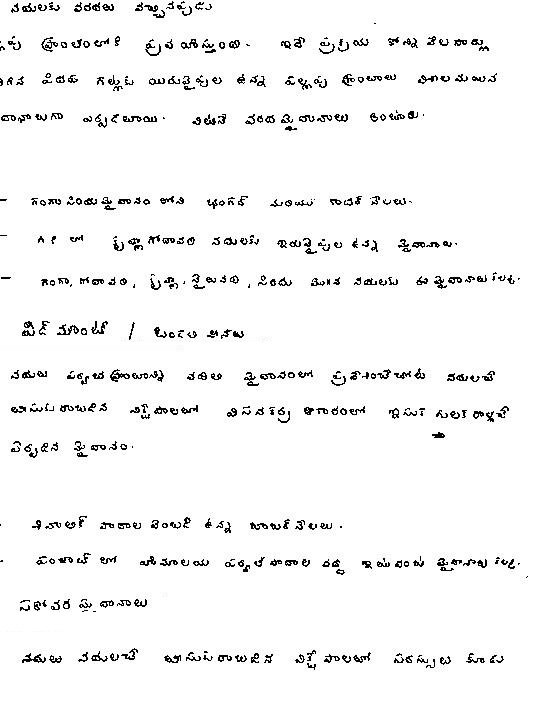 నదులకు వరదలు వచ్చినప్పుడు
ప్రాంతంలోకి ప్రవహిస్తుంది. ఇదే ప్రక్రియ కొన్ని వేల సార్లు
జరిగిన పిదప గట్లకు యిరువైపుల ఉన్న పల్లపు ప్రాంతాలు విశాలమయిన
మైదానాలుగా ఏర్పడతాయి. వీటినే వరద మైదానాలు అంటారు.
- గంగా సింధు మైదానం లోని భంగర్ మరియు ఖాదర్ నేలలు.
- లో కృష్ణా గోదావరి నదులకు ఇరువైపుల ఉన్న మైదానాలు.
- గంగా, గోదావరి, కృష్ణా, నైలునది, సింధు మొగిన నదులకు ఈ మైదానాలు కలవు.
పీడ్ మాంట్ / ఒండలి
నదులు పర్వత ప్రాంతాన్ని వదిలి మైదానంలో ప్రవేశించేచోట నదులచే
తీసుకురాబడిన నిక్షేపాలతో విసనకర్ర ఆకారంలో ఇసుక గులకరాళ్లచే
ఏర్పడిన మైదానం.
- శివాలిక్ పాదాల వెంబడి ఉన్న బాబర్ నేలలు.
- పంజాబ్ లో హిమాలయ పర్వత పాదాల వద్ద ఇటువంటి మైదానాలు కలవు.
సరోవర మైదానాలు
నదులు నదులచే తీసుకురాబడిన నిక్షేపాలతో సరస్సులు కూడు